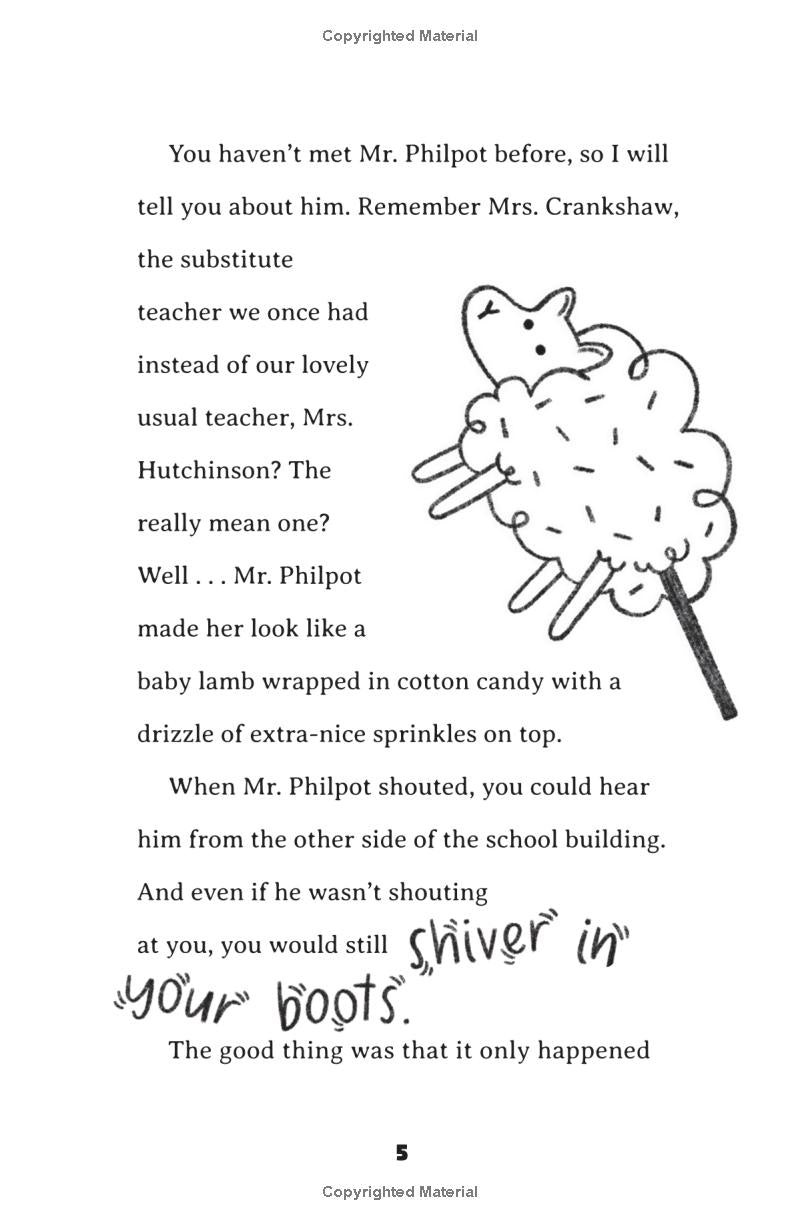 Copyrighted Material
You haven’t met Mr. Philpot before, so I will
tell you about him. Remember Mrs. Crankshaw,
the substitute
teacher we once had
instead of our lovely
usual teacher, Mrs.
Hutchinson? The
really mean one?
Well . . . Mr. Philpot
made her look like a
baby lamb wrapped in cotton candy with a
drizzle of extra-nice sprinkles on top.
When Mr. Philpot shouted, you could hear
him from the other side of the school building.
And even if he wasn’t shouting
at you, you would still shiver in
your boots.
The good thing was that it only happened
5
Copyrighted Material